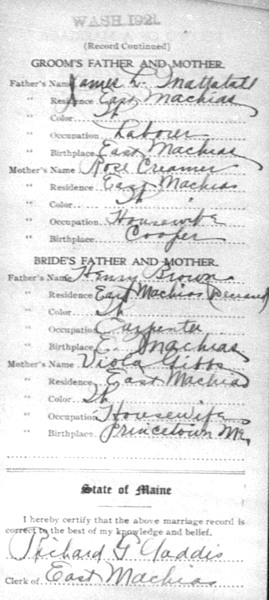 WASH 1921
(Record Continued)
GROOM'S FATHER AND MOTHER.
Father's Name James L. Mallatall
" Residence East Machias
" Color W
" Occupation Laborer
" Birthplace East Machias
Mother's Name Rose Creamer
" Residence East Machias
" Color W
" Occupation Housewife
" Birthplace Cooper
BRIDE'S FATHER AND MOTHER.
Father's Name Henry Brown
" Residence East Machias (Deceased
" Color W
" Occupation Carpenter
" Birthplace E. Machias
Mother's Name Viola Gibbs
" Residence East Machias
" Color W
" Occupation Housewife
" Birthplace Princetown Me
State of Maine
I hereby certify that the above marriage record is
correct to the best of my knowledge and belief.
Richard G Gaddis
Clerk of East Machias